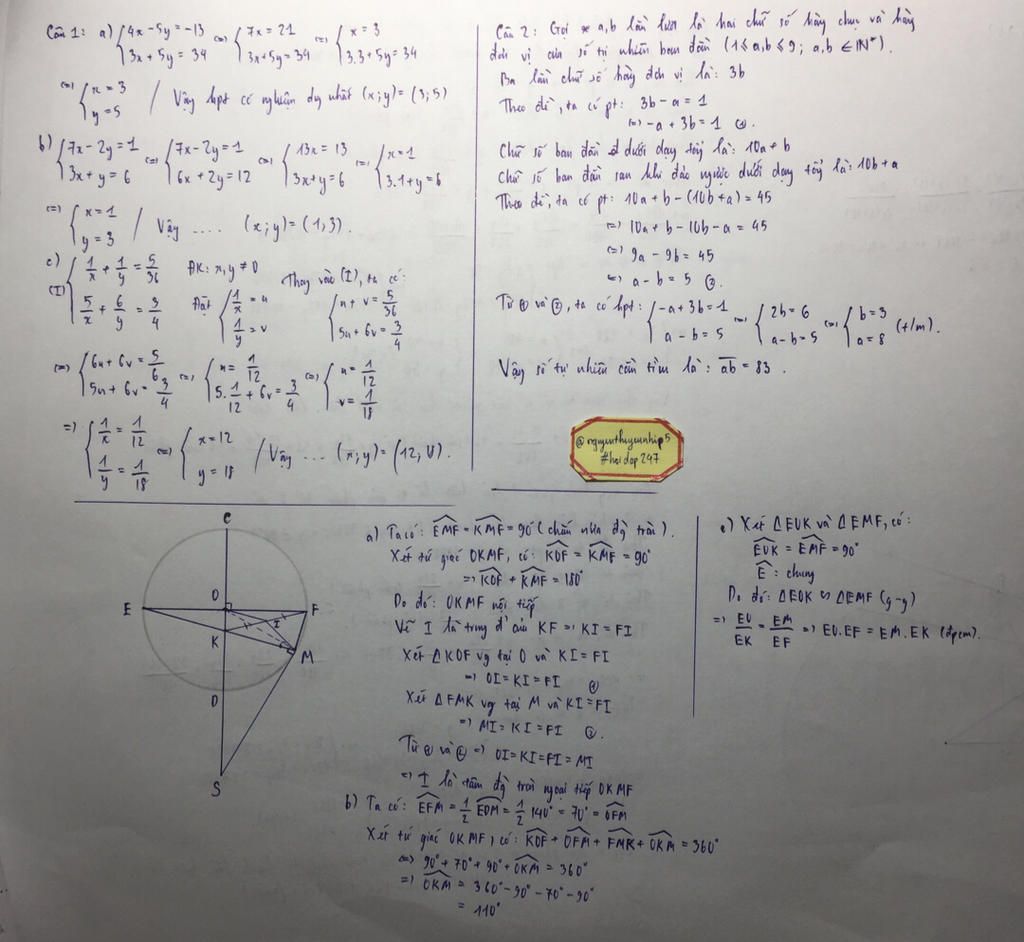 Câu 1: a) { 4x - 5y = -13 (=) { 7x = 21 (=) { x = 3
3x + 5y = 34 3x + 5y = 34 3.3 + 5y = 34
(=) { x = 3 / Vậy hpt có nghiệm duy nhất (x; y) = (3; 5)
y = 5
b) { 7x - 2y = 1 (=) { 7x - 2y = 1 (=) { 13x = 13 (=) { x = 1
3x + y = 6 6x + 2y = 12 3x + y = 6 3.1 + y = 6
(=) { x = 1 / Vậy .... (x; y) = (1, 3).
y = 3
c) { 1/x + 1/y = 5/36 ĐK: x, y ≠ 0 Thay vào (I), ta có:
(I) 5/x + 6/y = 3/4 Đặt { 1/x = u { u + v = 5/36
1/y = v 5u + 6v = 3/4
(=) { 6u + 6v = 5/6 (=) { u = 1/12 (=) { u = 1/12
5u + 6v = 3/4 5. 1/12 + 6v = 3/4 v = 1/18
=) { 1/x = 1/12 (=) { x = 12 / Vậy ... (x; y) =
1/y = 1/18 y = 18
Câu 2: Gọi a, b lần lượt là hai chữ số hàng chục và hàng
đơn vị của số tự nhiên ban đầu (1 ≤ a, b ≤ 9; a, b ∈ IN*).
Ba lần chữ số hàng đơn vị là: 3b
Theo đề, ta có pt: 3b - a = 1
(=) -a + 3b = 1 ①.
Chữ số ban đầu dưới dạng tổng là: 10a + b
Chữ số ban đầu sau khi đảo ngược dưới dạng tổng là: 10b + a
Theo đề, ta có pt: 10a + b - (10b + a) = 45
(=) 10a + b - 10b - a = 45
(=) 9a - 9b = 45
(=) a - b = 5 ②.
Từ ① và ②, ta có hpt: { -a + 3b = 1 (=) { 2b = 6 (=) { b = 3 (t/m).
a - b = 5 a - b = 5 a = 8
Vậy số tự nhiên cần tìm là: ab = 83.
@nguyenthuyennhip5
#hoidap247
C
E O F
I
K
M
D
S
a) Ta có: EMF = KMF = 90° (chắn nửa đg tròn).
Xét tứ giác OKMF, có: KOF = KMF = 90°
=) KOF + KMF = 180°
Do đó: OKMF nội tiếp
Vẽ I là trung đ' của KF =) KI = FI
Xét ΔKOF vg tại O và KI = FI
=) OI = KI = FI ①
Xét ΔFMK vg tại M và KI = FI
=) MI = KI = FI ②.
Từ ① và ② =) OI = KI = FI = MI
=) I là tâm đg tròn ngoại tiếp OKMF
b) Ta có: EFM = 1/2 EOM = 1/2 140° = 70° = OFM
Xét tứ giác OKMF, có: KOF + OFM + FMK + OKM = 360°
(=) 90° + 70° + 90° + OKM = 360°
=) OKM = 360° - 90° - 70° - 90°
= 110°
c) Xét ΔEOK và ΔEMF, có:
EOK = EMF = 90°
E: chung
Do đó: ΔEOK ∽ ΔEMF (g-g)
=) EO/EK = EM/EF =) EO.EF = EM.EK (đpcm).